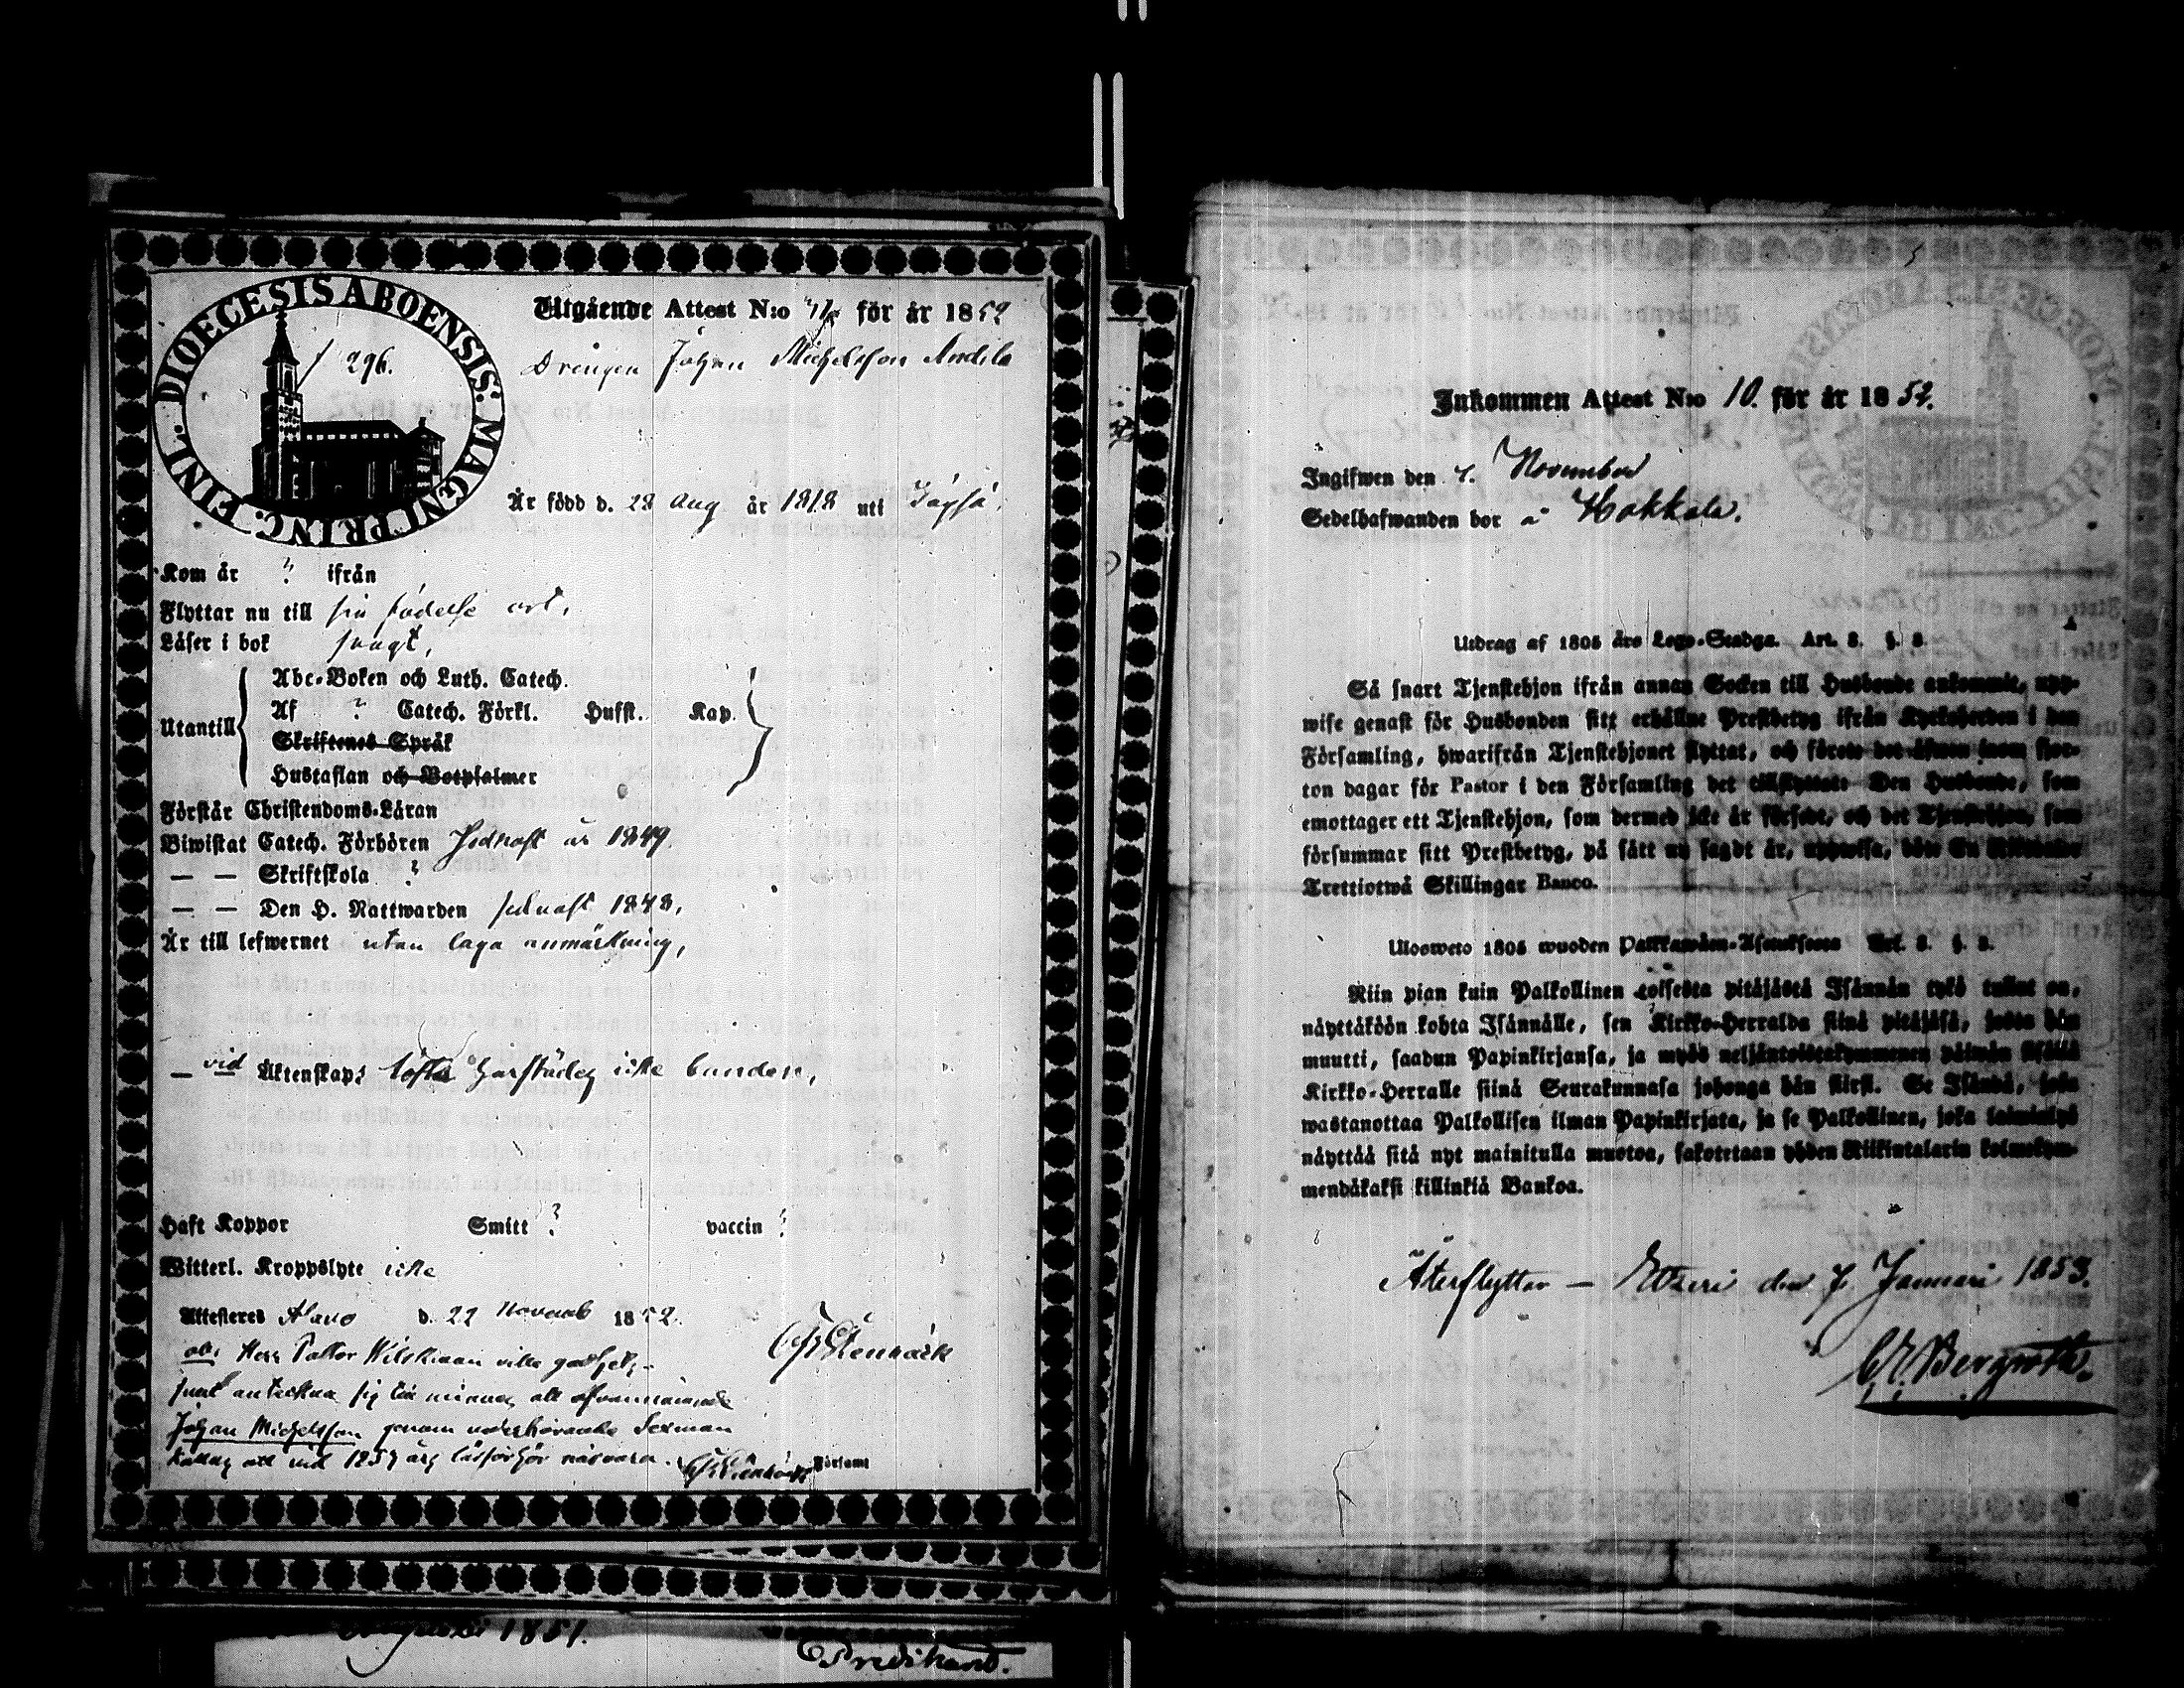 DIOECESIS ABOENSIS: MAGNI PRINC. FINL.
296.
Utgående Attest N:o för år 1852
Drengen Johan Michelsson Andila
Är född d. 28 Aug år 1818 uti
Kom år ? ifrån
Flyttar nu till sin födelse ort,
Läser i bok svagt,
Utantill
Abc-Boken och Luth. Catech.
Af ? Catech. Förkl. Hufst. Kap.
Skriftenes Språk
Hustaflan och Botpsalmer
Förstår Christendoms-Läran
Biwistat Catech. Förhören sednast år 1849.
— — Skriftskola ?
— — Den H. Nattwarden sednast 1848,
Är till lefwernet utan laga anmärkning,
— vid Äktenskaps löfte härstädes icke bunden,
Haft Koppor Smitt ? vaccin ?
Witterl. Kroppslyte icke
Attesteras Alavo d. 22 Novemb 1852.
obs Herr Pastor
anteckna sig till minnes att ofvannämnde
Johan Michelsson genom Sexman
att vid läsförhör närvara.
Församl
1851.
Inkommen Attest N:o 10. för år 1852.
Ingifwen den 7. November
Sedelhafwanden bor å Hokkala.
Utdrag af 1805 års Lego-Stadga. Art. 8. §. 8.
Så snart Tjenstehjon ifrån annan Socken till Husbonde ankommit, upp-
wise genast för Husbonden sitt erhållne Prestbetyg ifrån Kyrkoherden i den
Församling, hwarifrån Tjenstehjonet flyttat, och förete det äfwen inom fjor-
ton dagar för Pastor i den Församling det tillflyttat. Den Husbonde, som
emottager ett Tjenstehjon, som dermed icke är försedt, och det Tjenstehjon, som
försummar sitt Prestbetyg, på sätt nu sagdt är, uppwisa, böte En Riksdaler
Trettiotwå Skillingar Banco.
Ulosweto 1805 wuoden Palkkawäen-Asetuksesta Art. 8. §. 8.
Niin pian kuin Palkollinen toisesta pitäjästä Isännän tykö tullut on,
näyttäköön kohta Isännälle, sen Kirkko-Herralda siinä pitäjäsä, josta hän
muutti, saadun Papinkirjansa, ja myös neljäntoistakymmenen päiwän sisällä
Kirkko-Herralle siinä Seurakunnasa johonga hän siirsi. Se Isändä, joka
wastanottaa Palkollisen ilman Papinkirjata, ja se Palkollinen, joka laiminlyö
näyttää sitä nyt mainitulla muotoa, sakotetaan yhden Riikintalarin kolmekym-
mendäkaksi killinkiä Bankoa.
Återflyttar — Etseri den 7. Januari 1853.
C. E. Bergroth.